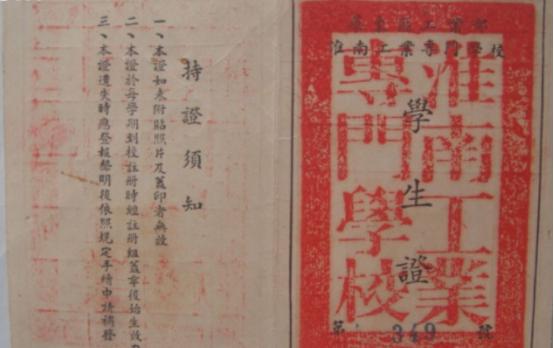 華東區工業部
淮南工業專門學校
淮南工業
專門學校
學生證
第 349 號
持證須知
一、本證如未附貼照片及蓋印者無效
二、本證於每學期到校註冊時經註冊組蓋章後始生效力
三、本證遺失時應登報聲明後依照規定手續申請補發